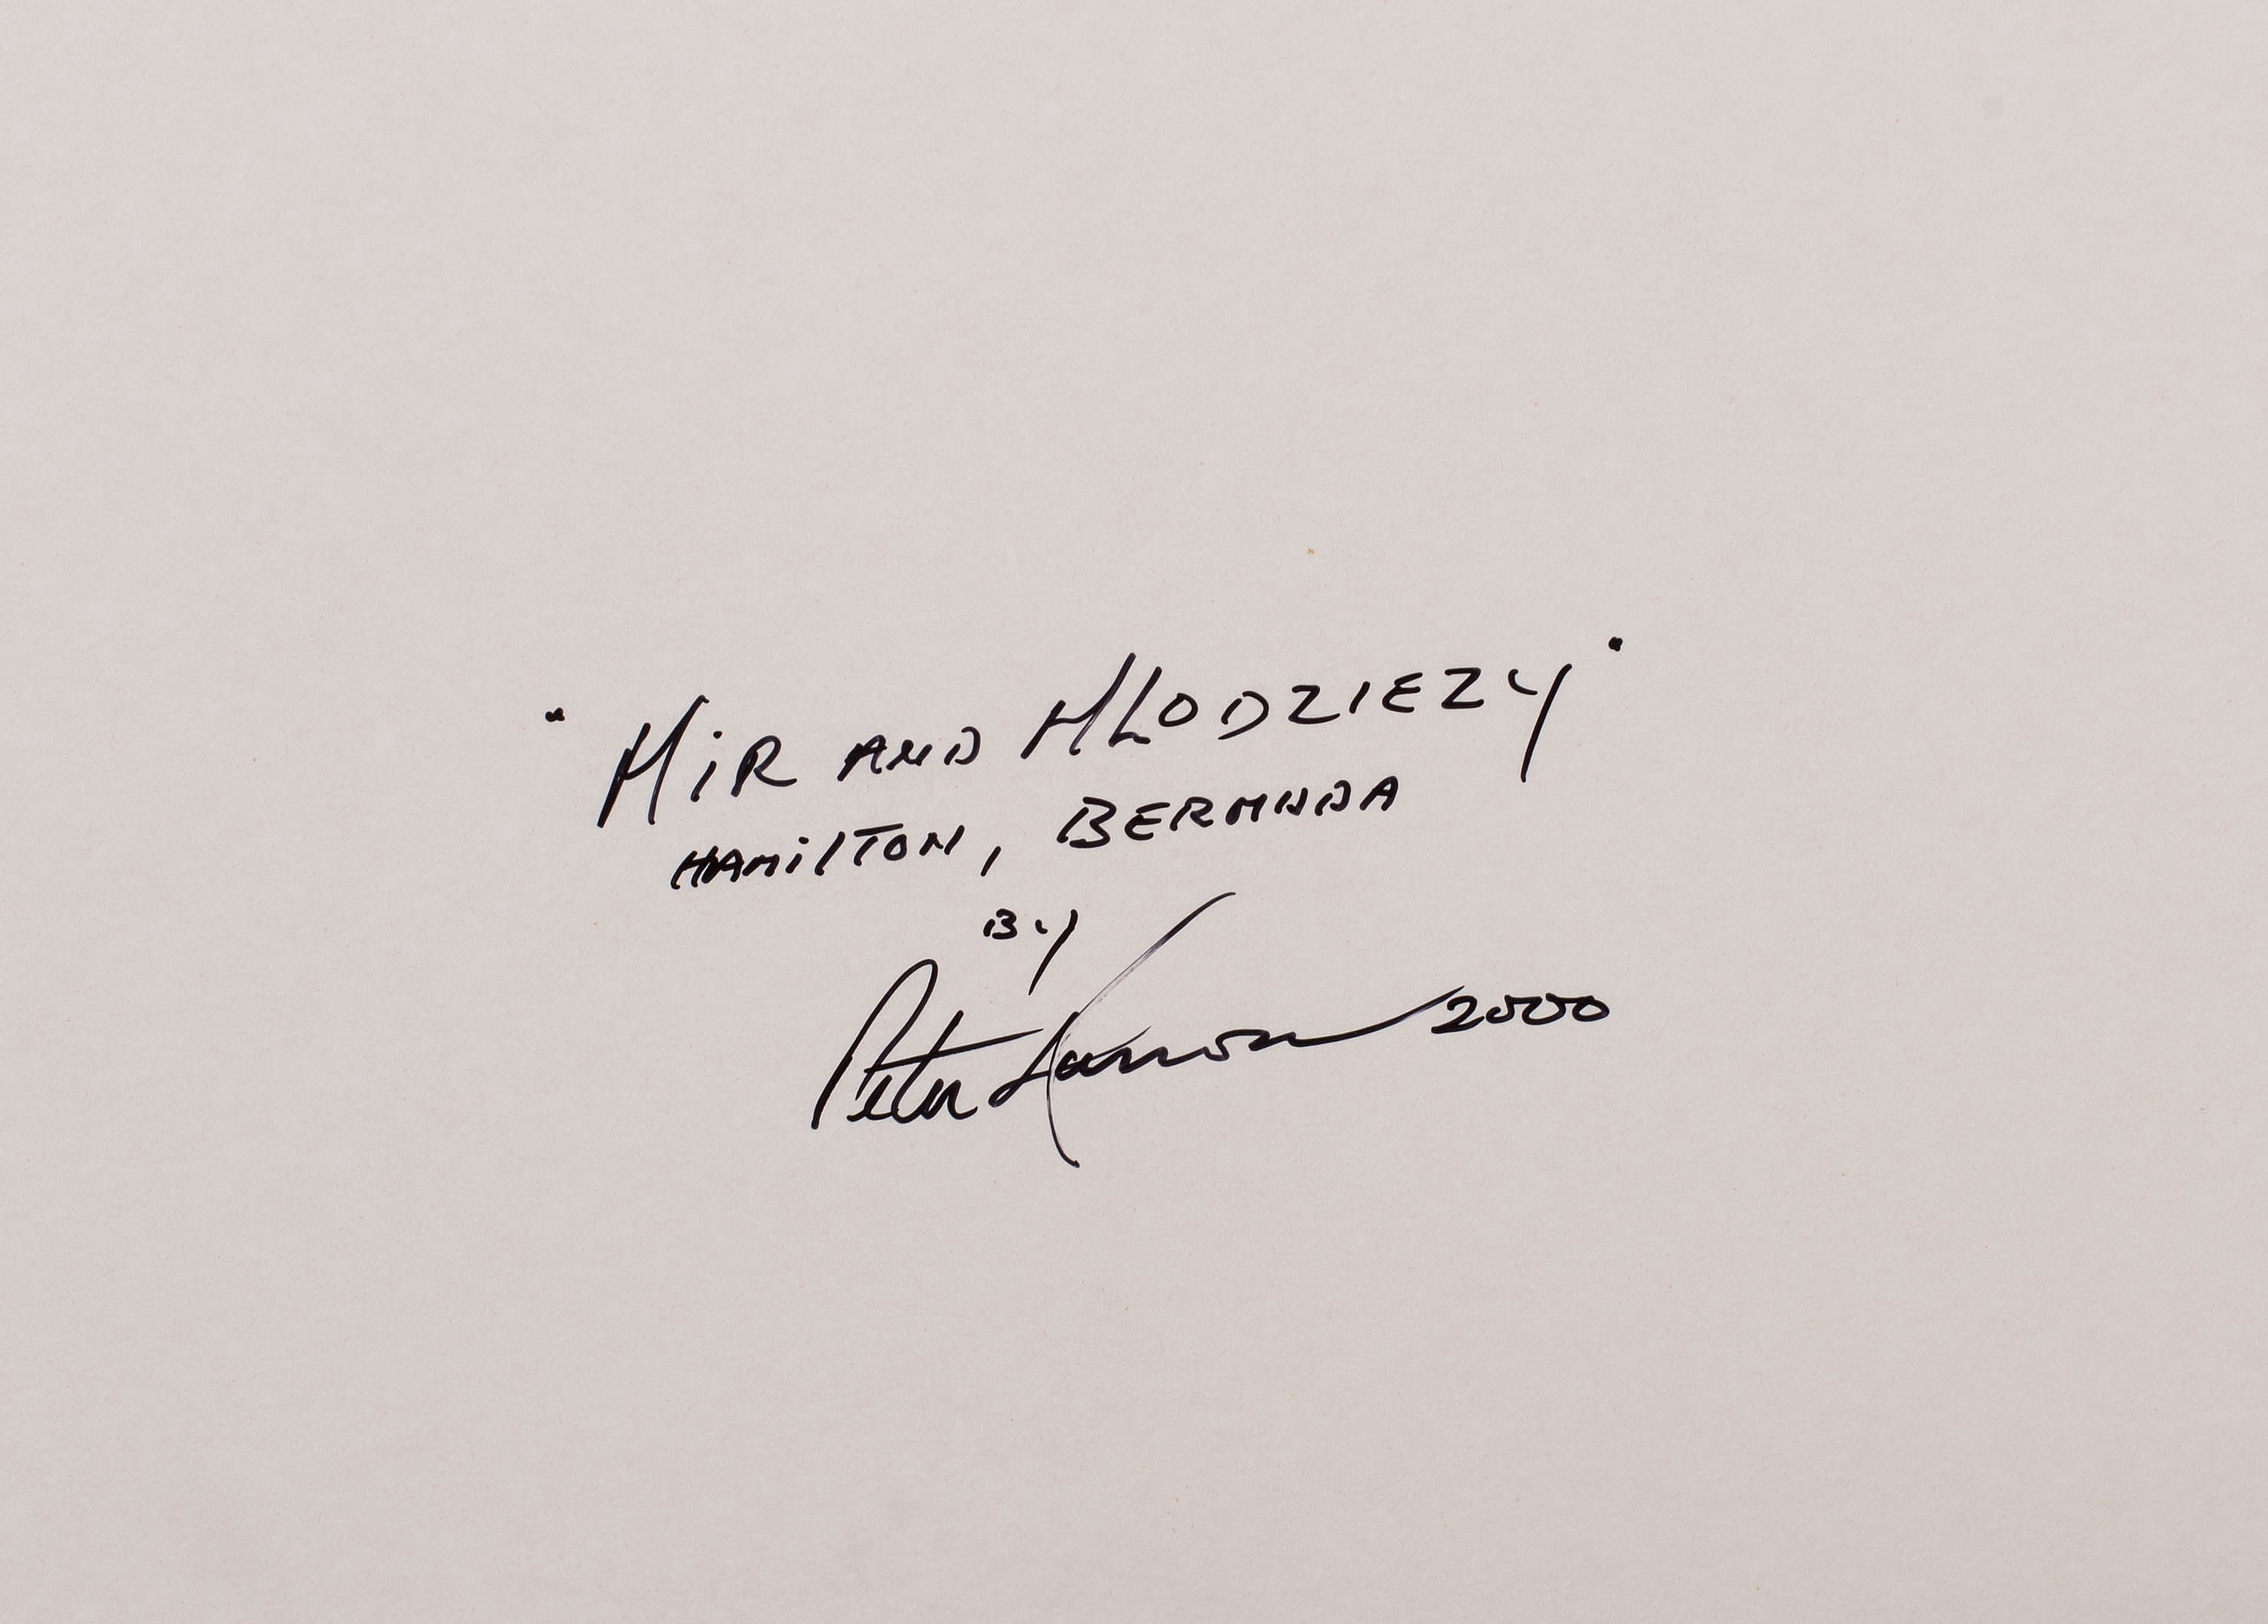 "MiR AND MLODZIEZY"
HAMiLTON, BERMUDA
By
Peter 2000